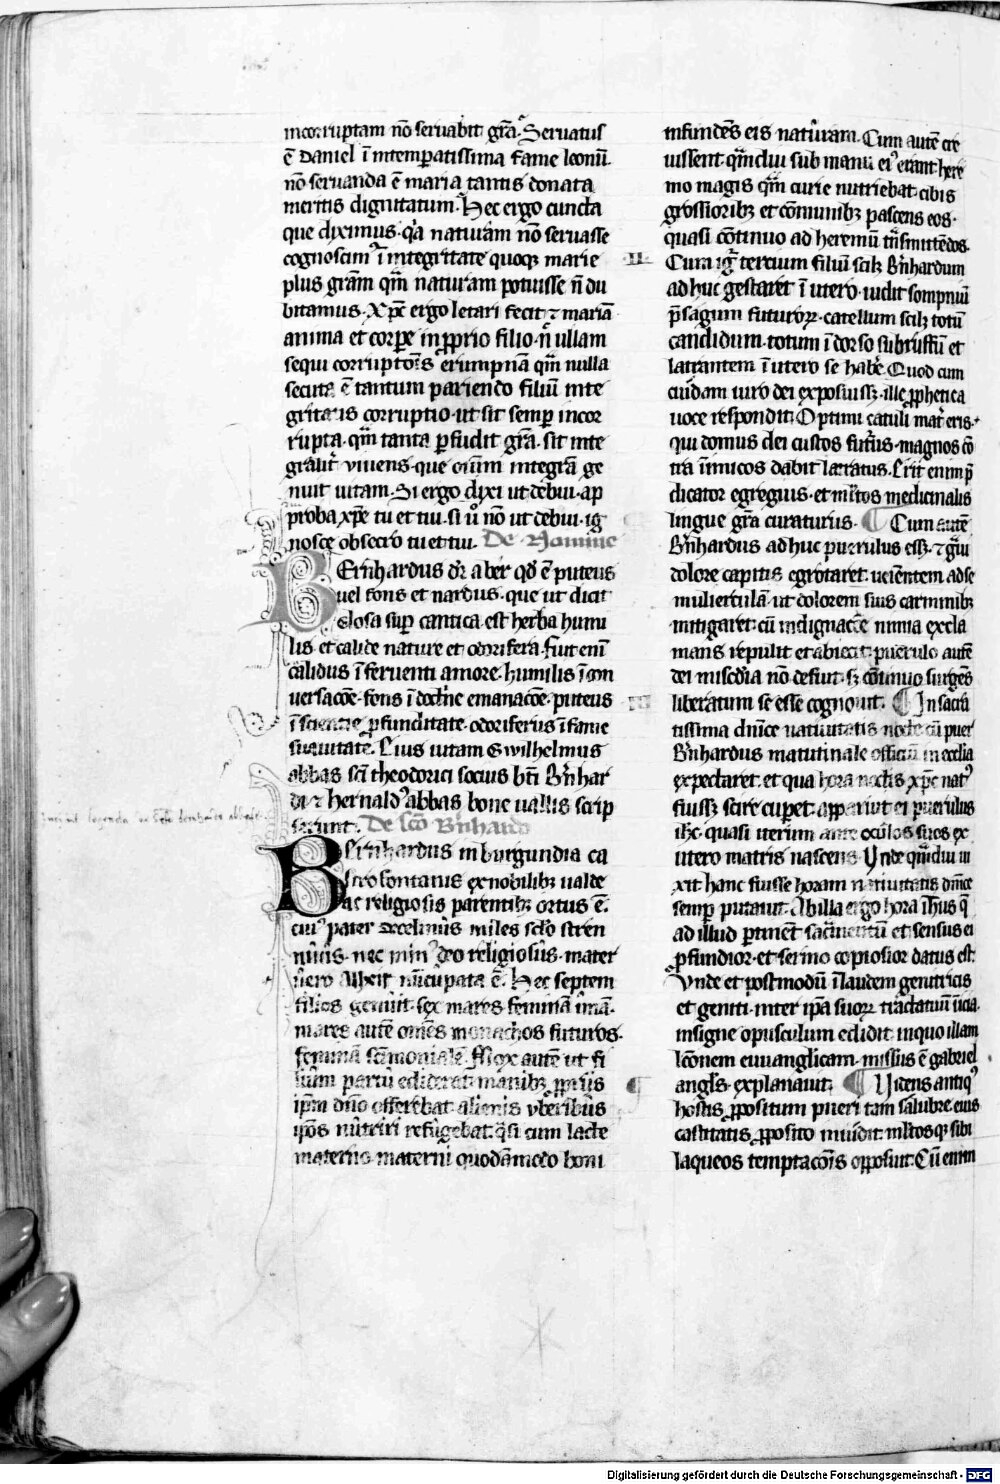 incorruptam nō seruabit gr̄a. Seruatus
ē Daniel ī intemꝑatissima fame leonū.
nō seruanda ē maria tantis donata
meritis dignitatum. Hec ergo cuncta
que diximus. qͥa naturam nō seruasse
cognoscimꝰ ī integritate quoqꝫ marie
plus gr̄am qm̄ naturam potuisse n̄ du
bitamus. Xp̄e ergo letari fecit ⁊ mariā
anima et corꝑe in ꝓprio filio. n̄ ullam
sequi corruptōis erūpnā qm̄ nulla
secuta ē tantum pariendo filiū inte
gritatis corruptio. ut sit semꝑ incor
rupta. qm̄ tanta ꝑfudit gr̄a. sit inte
graliter viuens. que oīum integrā ge
nuit uitam. Si ergo dixi ut debui. ap
proba xp̄e tu et tui. si ū nō ut debui. ig
nosce obsecro tu et tui. De Nomine
BErnhardus dr̄ a ber qd̄ ē puteus
uel fons et nardus. que ut dicit
Glosa suꝑ cantica. est herba humi
lis et calide nature et odorifera. fuit enī
calidus ī feruenti amore. humilis ī con
uersacōe. fons ī doctͥne emanacōe. puteus
ī sciencie ꝓfunditate. odoriferus ī fame
suauitate. Eius uitam Gwilhelmus
abbas sc̄i theodorici socius bt̄i Bn̄har
di ⁊ hernaldꝰ abbas bone uallis scrip
serunt. De sc̄o Bn̄hardo
incipit legenda de sc̄o bernhardo abbate
BErnhardus in burgundia ca
stro fontanis ex nobilibꝫ ualde
ac religiosis parentibꝫ ortus ē.
cuiꝰ pater Tecelinus miles sclo stren
nuus. nec minꝰ deo religiosus. mater
uero Alheit nūcupata ē. Hec septem
filios genuit. sex mares feminā unā.
mares autē om̄es monachos futuros.
feminā sc̄imoniale. Mox autē ut fi
lium partu ediderat. manibꝫ ꝓpriis
ip̄m dn̄o offerebat. alienis vberibus
ip̄os nutriri refugebat. q̄si cum lacte
materno. materni quodāmodo boni
infundēs eis naturam. Cum autē cre
uissent. qm̄diu sub manu eiꝰ erant. here
mo magis qm̄ curie nutriebat. cibis
grossioribꝫ et cōmunibꝫ pascens eos.
quasi cōtinuo ad heremū trāsmittēdos.
II. Cum igr̄ tercium filiū scilꝫ Bn̄hardum
ad huc gestaret ī utero. uidit sompniū
p̄sagum futurorꝫ. catellum scilꝫ totū
candidum. totum ī dorso subruffū et
latrantem ī utero se habe. Quod cum
cuidam uiro dei exposuissꝫ. ille ꝓphetica
uoce respondit. Optimi catuli mat̄ eris.
qui domus dei custos futurus. magnos cō
tra inimicos dabit latratus. Erit enim p̄
dicator egregius. et ml̄tos medicinalis
lingue gr̄a curaturus. ¶ Cum autē
Bn̄hardus ad huc puerulus essꝫ. ⁊ gͣui
dolore capitis egrotaret. uenientem ad se
mulierculā. ut dolorem suis carminibꝫ
mitigaret. cū indignacōe nimia excla
mans repulit et abiecit. puerulo autē
dei misc̄dia nō defuit. sꝫ cōtinuo surgēs
III liberatum se esse cognouit. ¶ In sacra
tissima dn̄ice natiuitatis nocte cū puer
Bn̄hardus matutinale officiū in ecclia
expectaret. et qua hora noctis xp̄c natꝰ
fuissꝫ scire cuperet. apparuit ei puerulus
ih̄c. quasi iterum ante oculos suos ex
utero matris nascens. Vnde qm̄diu ui
xit hanc fuisse horam natiuitatis dn̄ice
semꝑ putauit. Ab illa ergo hora ih̄us q̄
ad illud ꝑtinēt sacramentū et sensus ei
ꝓfundior. et sermo copiosior datus est.
Vnde et postmodū ī laudem genitricis
et geniti. inter ip̄a suorꝫ tractatuū inicia
insigne opusculum edidit. in quo illam
lc̄onem euuanglicam. missus ē gabriel
angls̄. explanauit. ¶ Uidens antiqꝰ
hostis ꝓpositum pueri tam salubre. eius
castitatis ꝓposito inuidit. ml̄tosqꝫ sibi
laqueos temptacōis opposuit. Cū enim
Digitalisierung gefördert durch die Deutsche Forschungsgemeinschaft - DFG